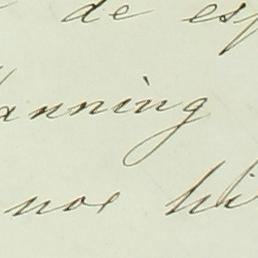 de esp
anning
nos hi